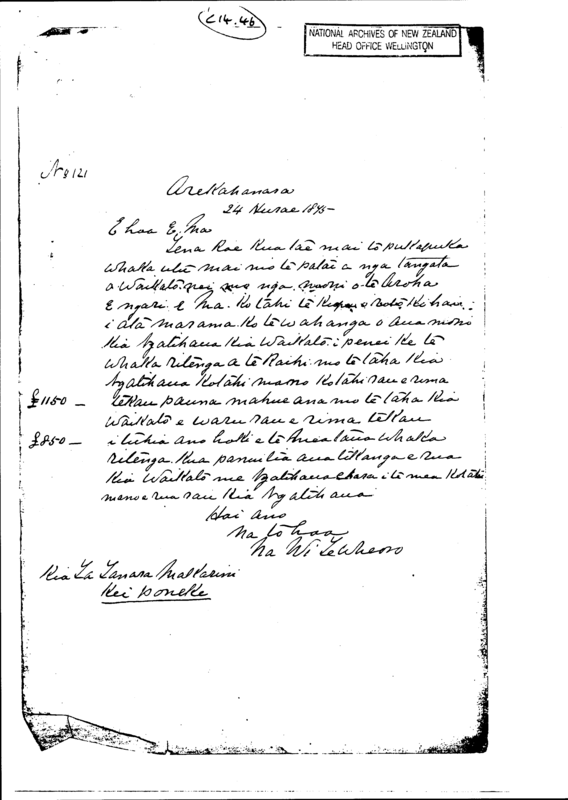 C14.46
NATIONAL ARCHIVES OF NEW ZEALAND
HEAD OFFICE WELLINGTON
No 121
Arekahanara
24 Hurae 1875
E hoa E Ma
Tena koe kua tae mai te pukapuka
whaka utu mai mo te patai a nga tangata
o Waikato nga moni o te Aroha
E ngari e Ma. Ko tahi te kupu i
i ata marama ko te wahanga o aua moni
kia Ngatihaua kia Waikato i penei ke te
whaka ritenga a te Raihi mo te taha kia
Ngatihaua kotahi mano kotahi rau e rima
£1150 — tekau pauna mahue ana mo te taha kia
Waikato e waru rau e rima tekau
£850 — i tuhia ano hoki e te taua whaka
ritenga. Kua panuitia aua tikanga e rua
kia Waikato me Ngatihaua i te mea kotahi
mano e rua rau kia Ngatihaua
Hoi ano
Na to hoa
Na Wi Te Wheoro
Kia Ta Tanara Makarini
Kei Poneke